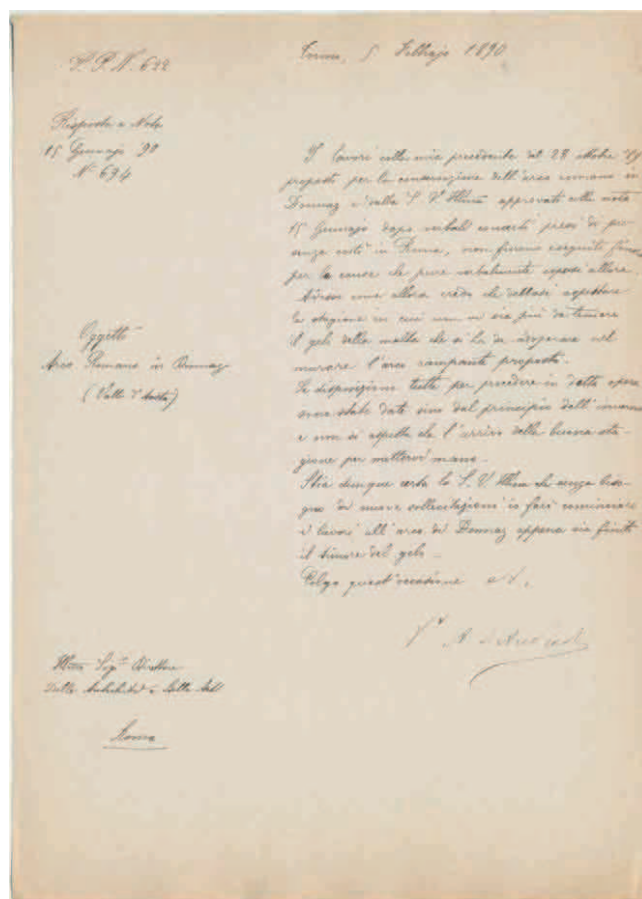 S. P. N. 622
Torino, 5 Febbrajo 1890
Risposta a Nota
15 Gennajo 90
N° 694
Oggetto
Arco Romano in Donnaz
(Valle d'Aosta)
I lavori colla mia precedente del 28 ottobre
proposti per la conservazione dell'arco romano in
Donnaz e dalla S. V. Illma approvati colla nota
15 Gennajo dopo verbali concerti presi di pre
senza costì in Roma, non furono eseguiti
per le cause che pure verbalmente esposi allora.
Adesso come allora credo che debbasi aspettare
la stagione in cui non vi sia più da temere
il gelo della malta che si ha da adoperare nel
murare l'arco rampante proposto.
Le disposizioni tutte per procedere in detta opera
sono state date sino dal principio dell'inverno
e non si aspetta che l'arrivo della buona sta
gione per mettervi mano.
Stia dunque certa la S. V. Illma che senza biso
gno di nuove sollecitazioni io farò cominciare
i lavori all'arco di Donnaz appena sia finito
il timore del gelo.
Colgo quest'occasione
A. d'Andrade
Illmo Sigr Direttore
delle Antichità e Belle Arti
Roma